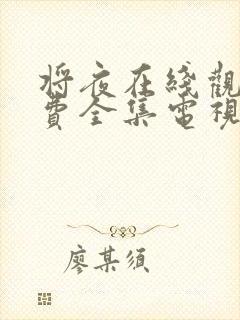 将夜在綫觀
費全集電視
廖某須